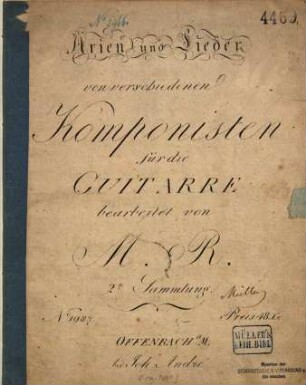 4469
Arien und Lieder
von verschiedenen
Komponisten
für die
GUITARRE
bearbeitet von
M. R.
2e Sammlung.
Müller
No 1927. Preis 48 x.
OFFENBACH a/M.
bei Joh. André
MÜLLER